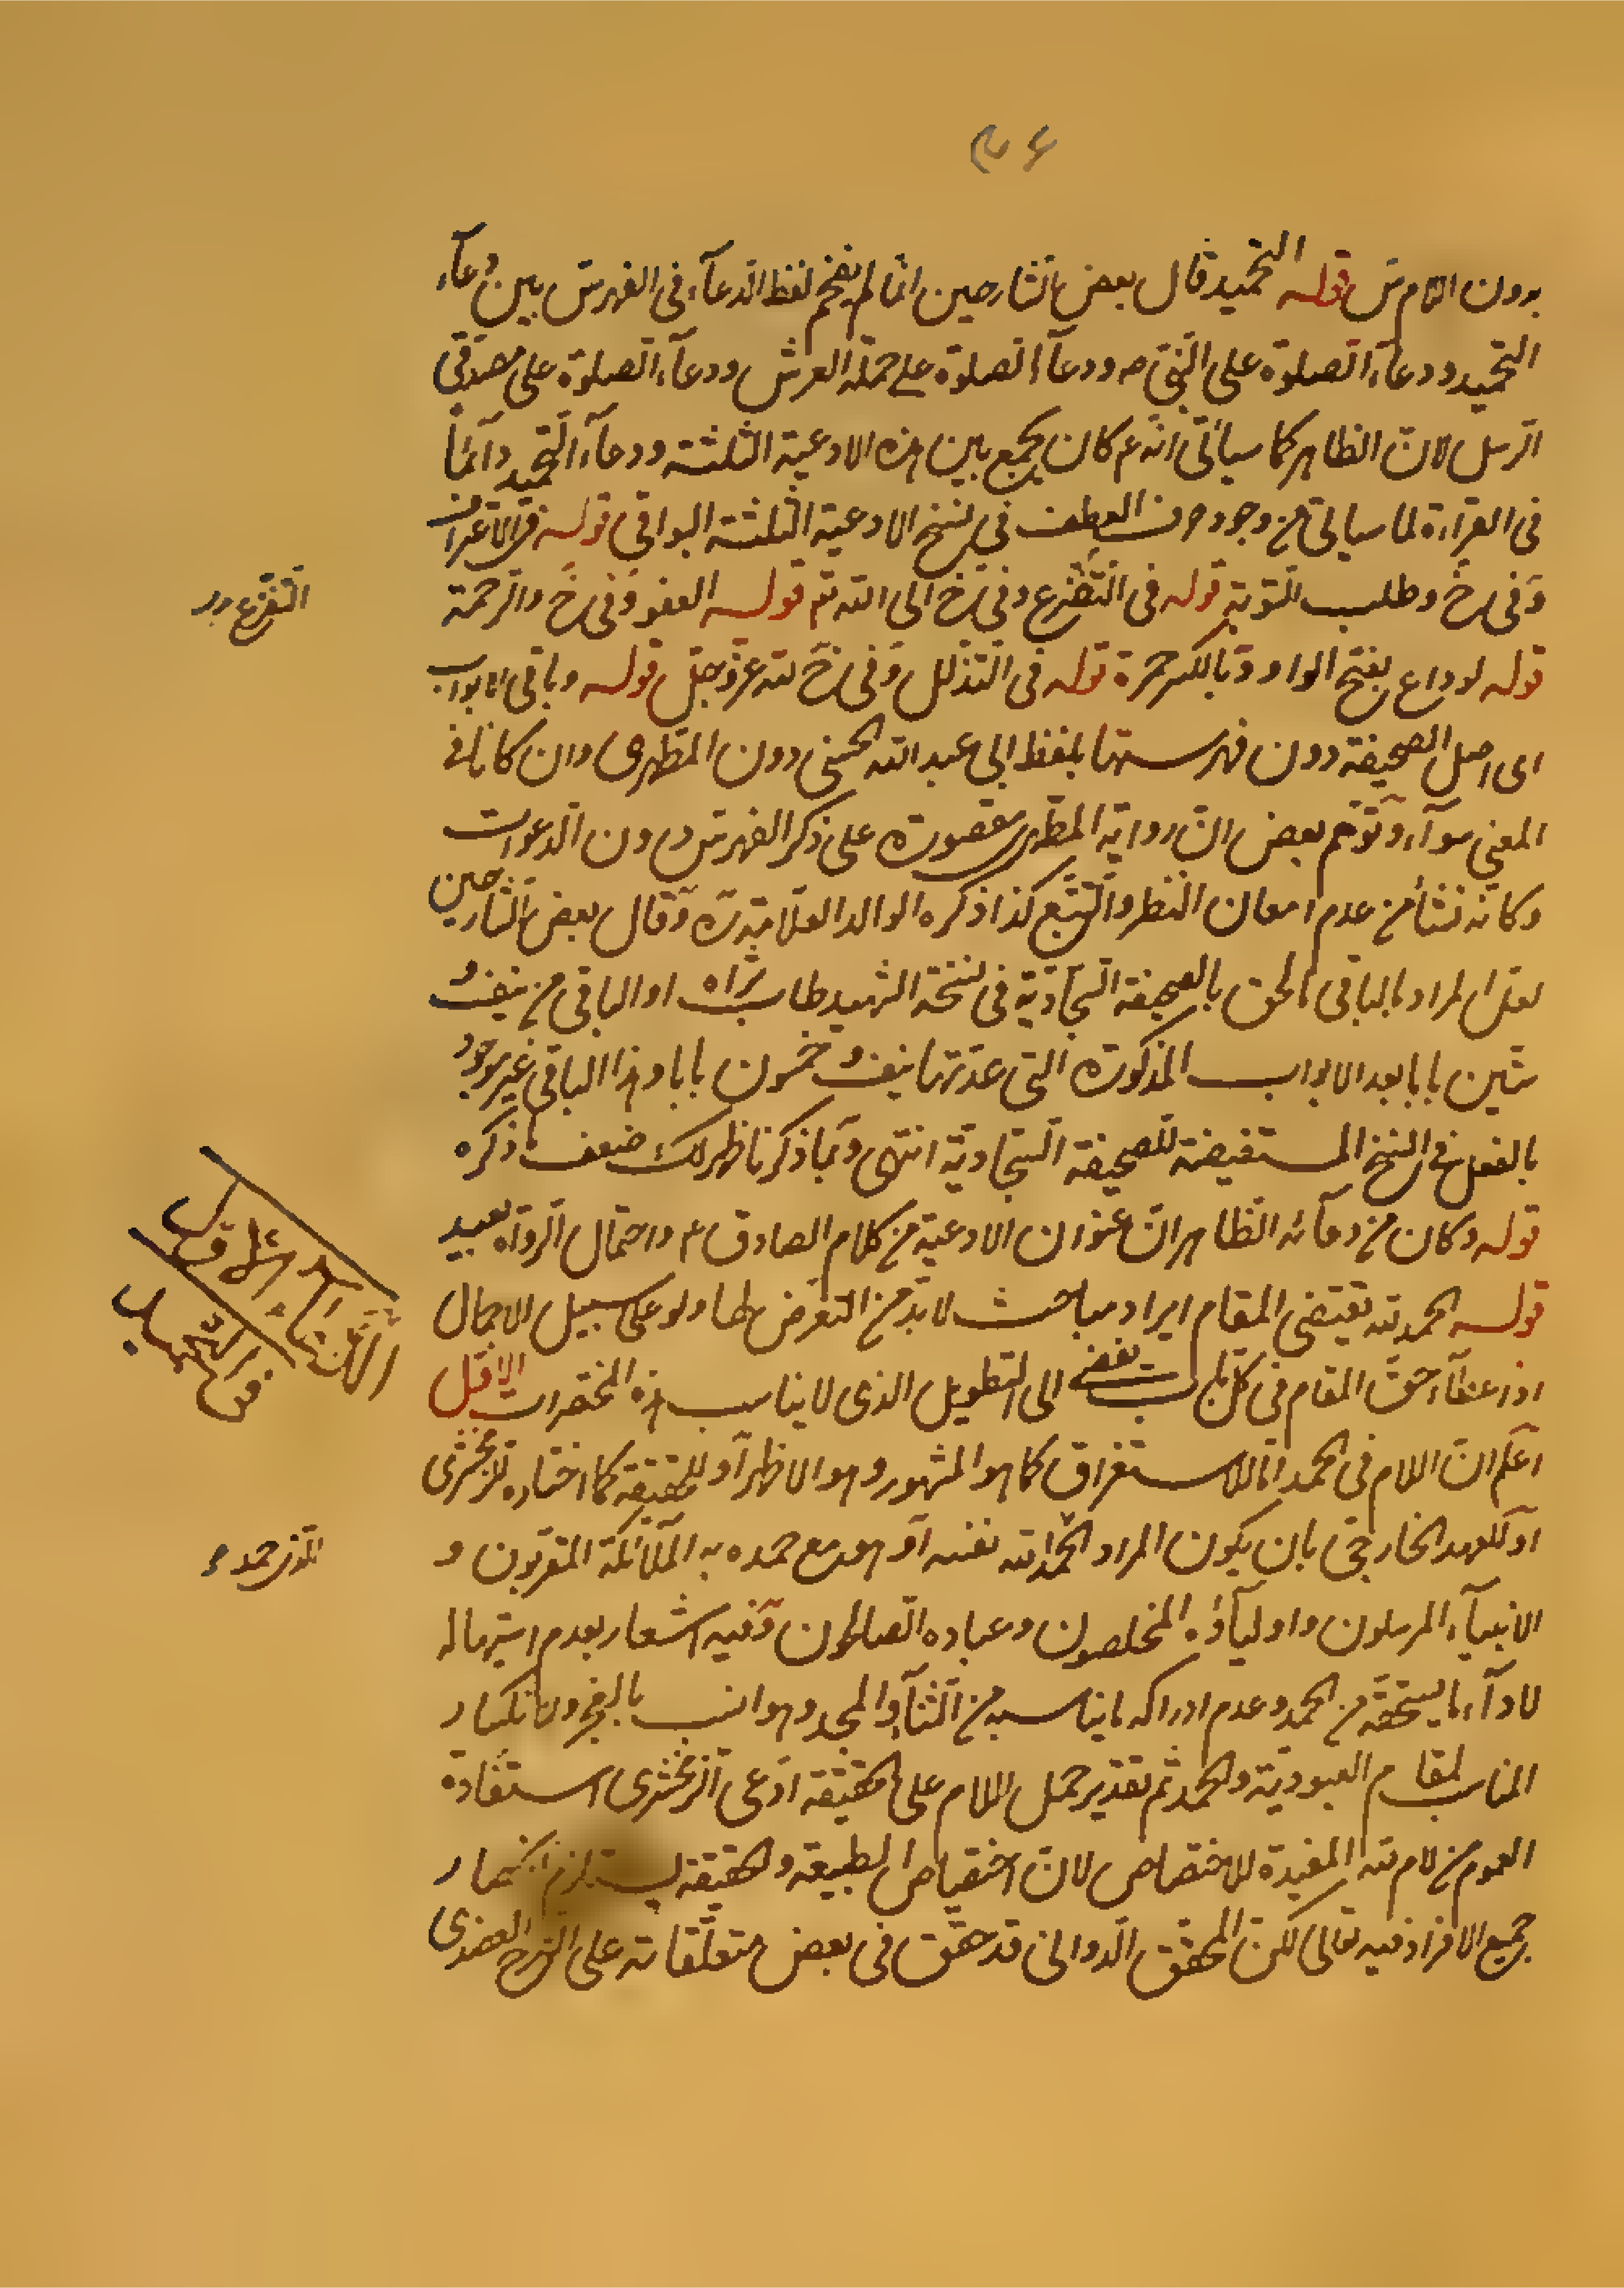 بدون اللام س قوله التحميد قال بعض الشارحين انما لم يفخم لفظ الدعآء في الفهرس بين دعآء
التحميد ودعآء الصلوة على النبي ص ودعآء الصلوة على حملة العرش ودعآء الصلوة على مصدقي
الرسل لان الظاهر كما سيأتي انه ع كان يجمع بين هذه الادعية الثلثة ودعآء التحميد دآئما
في القرآءة لما سيأتي من وجود حرف العطف في نسخ الادعية الثلثة البواقي قوله في الاعتراف
وفي خ وطلب التوبة قوله في التضرع وفي خ الى الله تم قوله العفو وفي خ والرحمة
التضرع
قوله لوداع بفتح الواو وبالكسر قوله في التذلل وفي خ لله عز وجل قوله وباقي الابواب
اى اصل الصحيفة دون فهرستها بلفظ ابي عبد الله الحسني دون المطهري وان كانا في
المعنى سوآء وتوهم بعض ان رواية المطهري مقصورة على ذكر الفهرس دون الدعوات
وكانه نشأ من عدم امعان النظر والتتبع كذا ذكره الوالد العلامة وقال بعض الشارحين
لعل المراد بالباقي الحق بالصحيفة السجادية في نسخة الشهيد طاب ثراه او الباقي من نيف و
ستين بابا بعد الابواب المذكورة التي عدتها نيف وخمسون بابا وهذا الباقي غير موجود
بالفعل في النسخ المستفيضة للصحيفة السجادية انتهى وبما ذكرنا ظهر لك ضعف ما ذكره
قوله وكان من دعآئه الظاهر ان عنوان الادعية من كلام الصادق ع واحتمال الرواة بعيد
قوله الحمد لله يقتضي المقام ايراد مباحث لا بد من التعرض لها ولو على سبيل الاجمال
في التحميد
اذ اعطآء حق المقام في كل باب يفضي الى التطويل الذى لا يناسب هذه المختصرات الاول
اعلم ان اللام في الحمد اما للاستغراق كما هو المشهور وهو الاظهر او للحقيقة كما اختاره الزمخشرى
او للعهد الخارجي بان يكون المراد الحمد لله نفسه او هو مع حمده به الملآئكة المقربون و
الانبيآء المرسلون واوليآؤه المخلصون وعباده الصالحون وفيه اشعار بعدم استيهاله
لادآء ما يستحقه من الحمد وعدم ادراكه ما يناسبه من الثنآء والمجد وهو انسب بالعجز والانكسار
المناسب لمقام العبودية والحمد ثم تقدير حمل اللام على الحقيقة ادعى الزمخشرى استفادة
العموم من لام لله المفيدة للاختصاص لان اختصاص الطبيعة والحقيقة يستلزم انحصار
جميع الافراد فيه تعالى لكن المحقق الدوانى قد حقق في بعض متعلقاته على الشرح العضدى